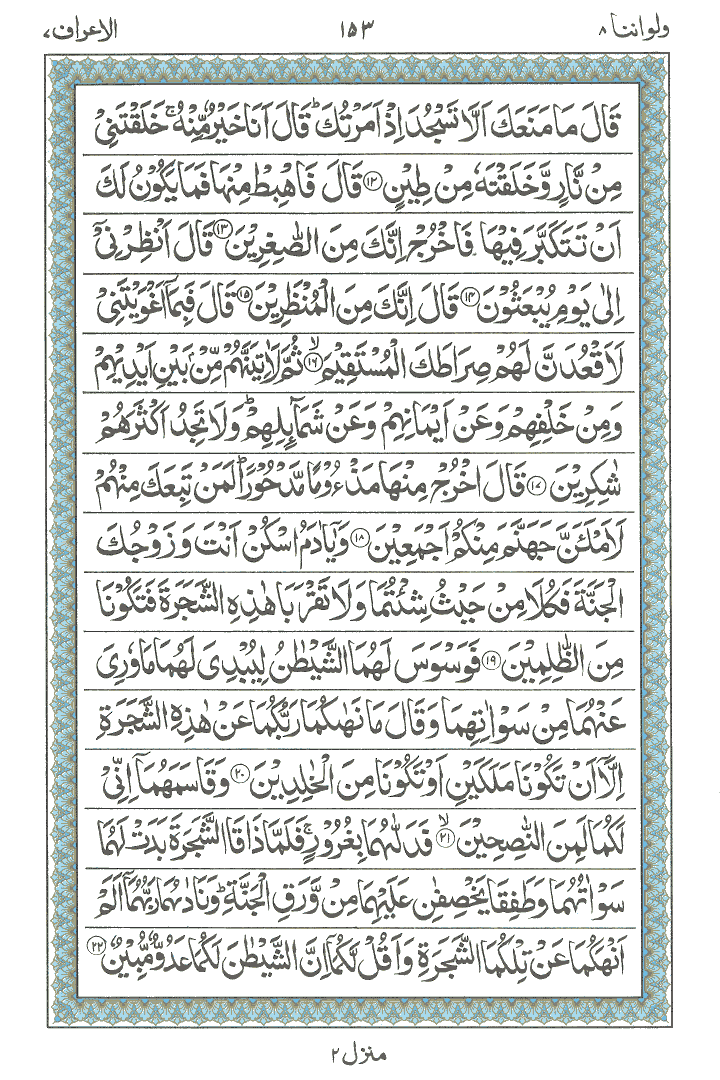 ولواننا ٨
١٥٣
الاعراف ٧
قَالَ مَا مَنَعَكَ اَلَّا تَسْجُدَ اِذْ اَمَرْتُكَ ؕ قَالَ اَنَا خَيْرٌ مِّنْهُ ۚ خَلَقْتَنِيْ
مِنْ نَّارٍ وَّخَلَقْتَهٗ مِنْ طِيْنٍ ۝١٢ قَالَ فَاهْبِطْ مِنْهَا فَمَا يَكُوْنُ لَكَ
اَنْ تَتَكَبَّرَ فِيْهَا فَاخْرُجْ اِنَّكَ مِنَ الصّٰغِرِيْنَ ۝١٣ قَالَ اَنْظِرْنِيْۤ
اِلٰى يَوْمِ يُبْعَثُوْنَ ۝١٤ قَالَ اِنَّكَ مِنَ الْمُنْظَرِيْنَ ۝١٥ قَالَ فَبِمَاۤ اَغْوَيْتَنِيْ
لَاَقْعُدَنَّ لَهُمْ صِرَاطَكَ الْمُسْتَقِيْمَ ۙ۝١٦ ثُمَّ لَاٰتِيَنَّهُمْ مِّنْۢ بَيْنِ اَيْدِيْهِمْ
وَمِنْ خَلْفِهِمْ وَعَنْ اَيْمَانِهِمْ وَعَنْ شَمَآئِلِهِمْ ؕ وَلَا تَجِدُ اَكْثَرَهُمْ
شٰكِرِيْنَ ۝١٧ قَالَ اخْرُجْ مِنْهَا مَذْءُوْمًا مَّدْحُوْرًا ؕ لَمَنْ تَبِعَكَ مِنْهُمْ
لَاَمْلَئَنَّ جَهَنَّمَ مِنْكُمْ اَجْمَعِيْنَ ۝١٨ وَيٰۤاٰدَمُ اسْكُنْ اَنْتَ وَزَوْجُكَ
الْجَنَّةَ فَكُلَا مِنْ حَيْثُ شِئْتُمَا وَلَا تَقْرَبَا هٰذِهِ الشَّجَرَةَ فَتَكُوْنَا
مِنَ الظّٰلِمِيْنَ ۝١٩ فَوَسْوَسَ لَهُمَا الشَّيْطٰنُ لِيُبْدِيَ لَهُمَا مَا وٗرِيَ
عَنْهُمَا مِنْ سَوْاٰتِهِمَا وَقَالَ مَا نَهٰىكُمَا رَبُّكُمَا عَنْ هٰذِهِ الشَّجَرَةِ
اِلَّاۤ اَنْ تَكُوْنَا مَلَكَيْنِ اَوْ تَكُوْنَا مِنَ الْخٰلِدِيْنَ ۝٢٠ وَقَاسَمَهُمَاۤ اِنِّيْ
لَكُمَا لَمِنَ النّٰصِحِيْنَ ۙ۝٢١ فَدَلّٰىهُمَا بِغُرُوْرٍ ۚ فَلَمَّا ذَاقَا الشَّجَرَةَ بَدَتْ لَهُمَا
سَوْاٰتُهُمَا وَطَفِقَا يَخْصِفٰنِ عَلَيْهِمَا مِنْ وَّرَقِ الْجَنَّةِ ؕ وَنَادٰىهُمَا رَبُّهُمَاۤ اَلَمْ
اَنْهَكُمَا عَنْ تِلْكُمَا الشَّجَرَةِ وَاَقُلْ لَّكُمَاۤ اِنَّ الشَّيْطٰنَ لَكُمَا عَدُوٌّ مُّبِيْنٌ ۝٢٢
منزل ٢